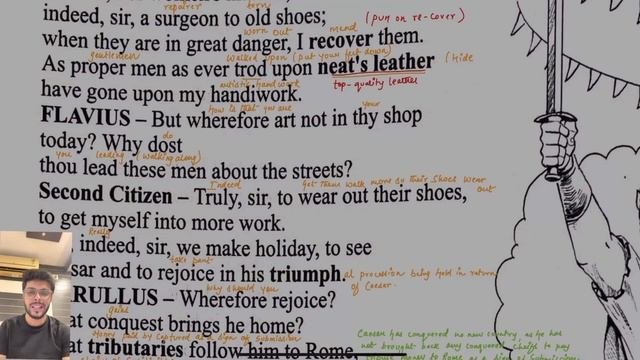 repairer torn
indeed, sir, a surgeon to old shoes; (pun on re-cover)
worn out mend
when they are in great danger, I recover them.
gentlemen walked upon (put your feet down)
As proper men as ever trod upon neat's leather (hide
artistic handwork top-quality leather
have gone upon my handiwork.
how is that you are your
FLAVIUS – But wherefore art not in thy shop
do
today? Why dost
you leading (walking along)
thou lead these men about the streets?
Indeed get them walk more so their shoes wear out
Second Citizen – Truly, sir, to wear out their shoes,
to get myself into more work.
Really
indeed, sir, we make holiday, to see
take part
sar and to rejoice in his triumph. al procession being held in return of Caesar.
why should you
RULLUS – Wherefore rejoice?
gains
at conquest brings he home?
Caesar has conquered no new country, as he has
paid by captured as a sign of submission not brought back any conquered chiefs to pay
at tributaries follow him to Rome,
money to Rome as a sign of